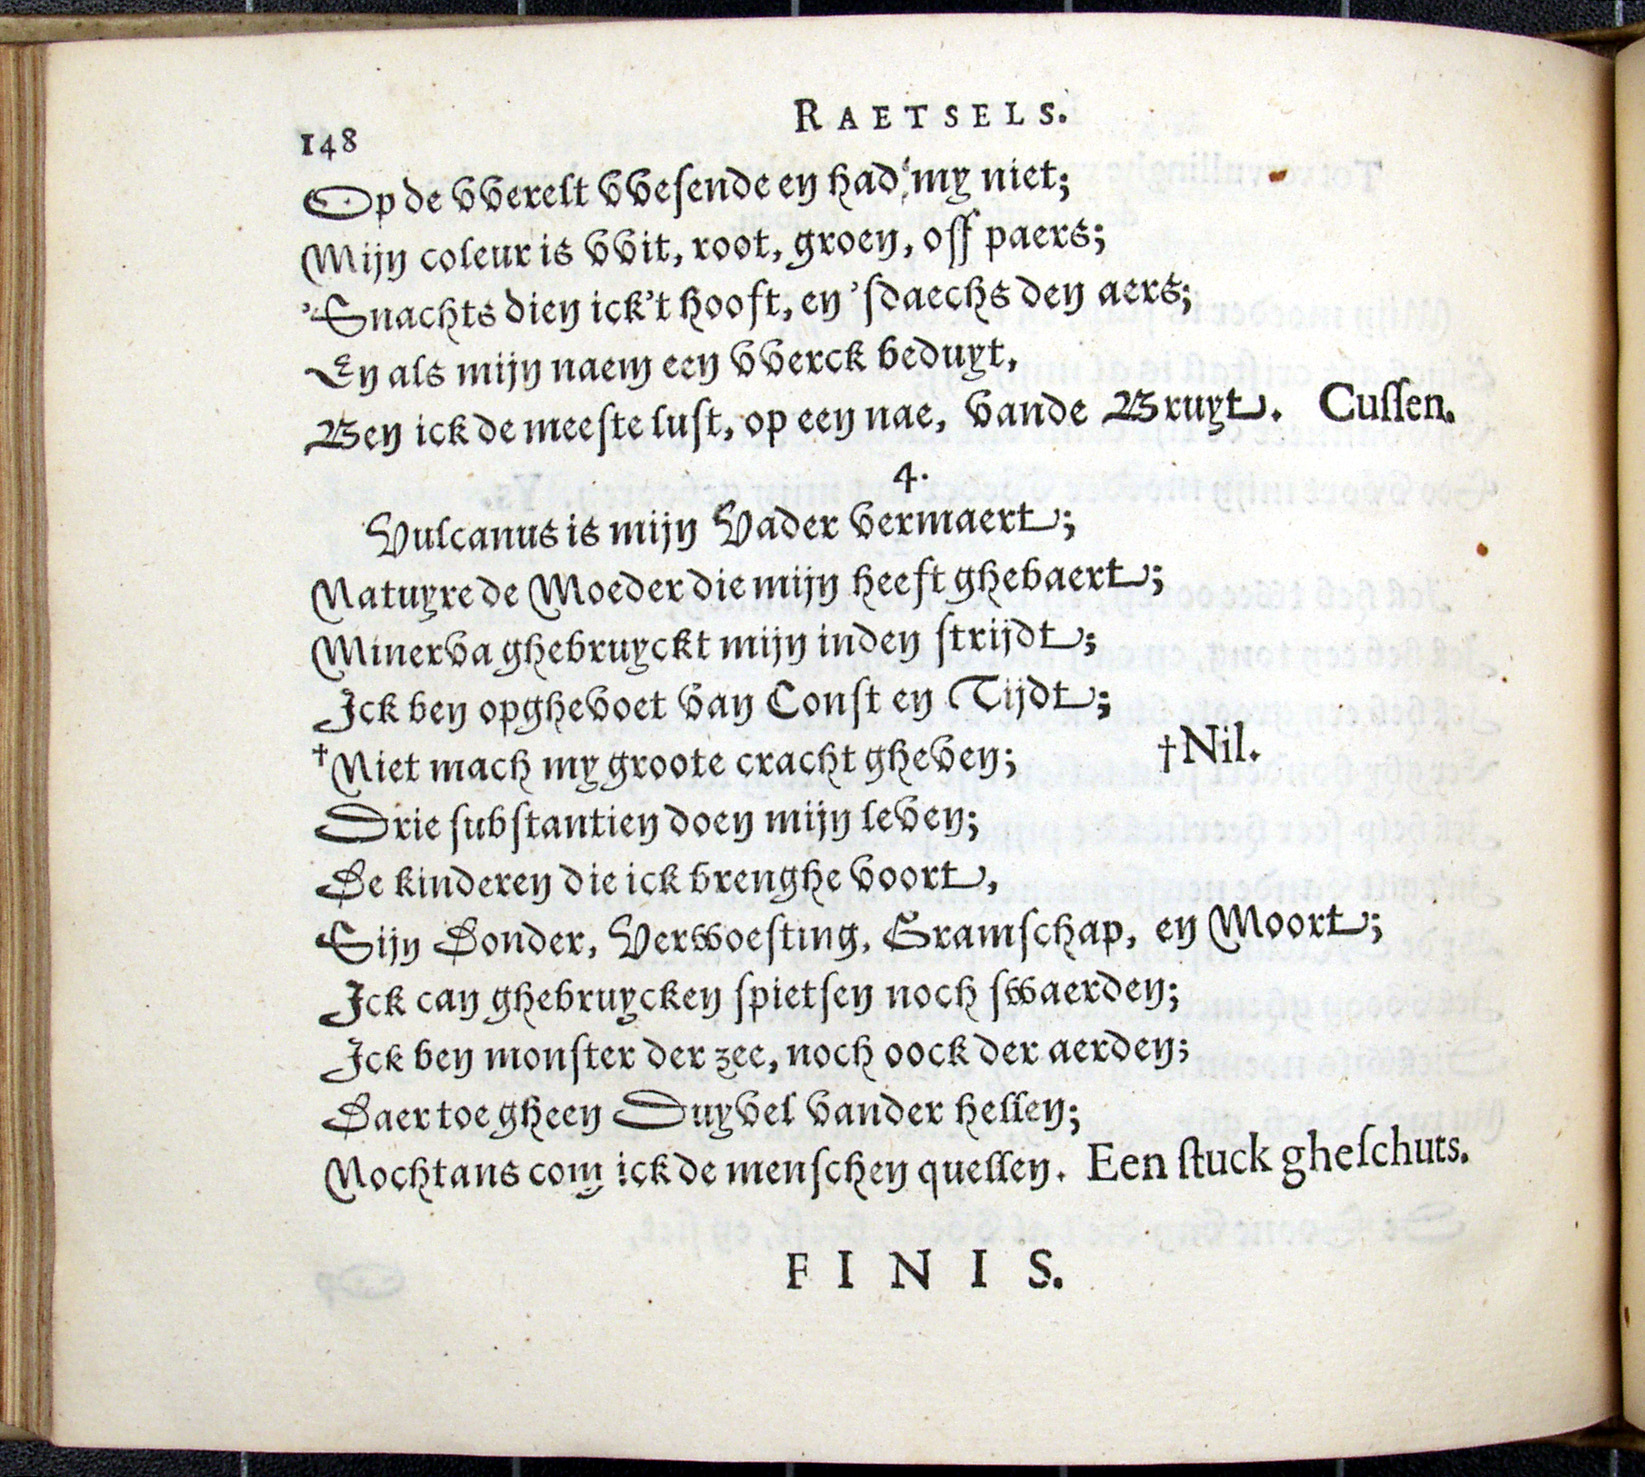 148
RAETSELS.
Op de VVerelt VVesende en had' my niet;
Mijn coleur is VVit, root, groen, off paers;
'Snachts dien ick't hooft, en 'sdaechs den aers;
En als mijn naem een VVerck beduyt,
Ben ick de meeste lust, op een nae, vande Bruyt. Cussen.
4.
Vulcanus is mijn Vader vermaert;
Natuyre de Moeder die mijn heeft ghebaert;
Minerva ghebruyckt mijn inden strijdt;
Ick ben opghevoet van Const en Tijdt;
†Niet mach my groote cracht gheven; †Nil.
Drie substantien doen mijn leven;
De kinderen die ick brenghe voort,
Sijn Donder, Verwoesting, Gramschap, en Moort;
Ick can ghebruycken spietsen noch swaerden;
Ick ben monster der zee, noch oock der aerden;
Daer toe gheen Duyvel vander hellen;
Nochtans com ick de menschen quellen. Een stuck gheschuts.
FINIS.